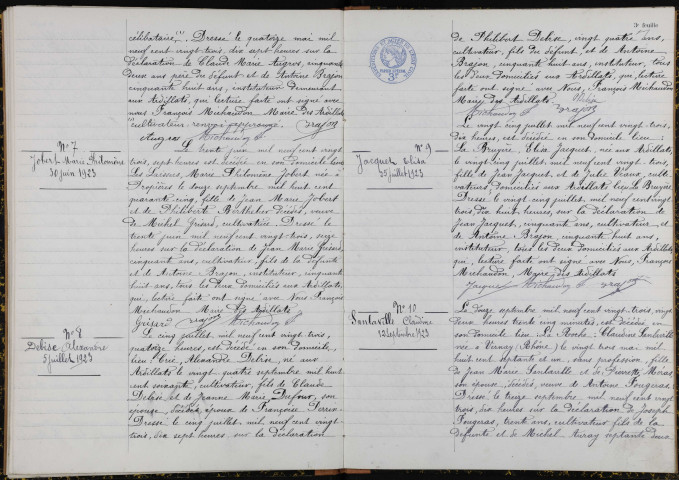 célibataire. Dressé le quatorze mai mil
neuf cent vingt-trois, dix sept heures sur la
déclaration de Claude Marie Augros, cinquante
deux ans père du défunt et de Antoine Brajon
cinquante huit ans, instituteur demeurant
aux Ardillats, qui lecture faite ont signé avec
nous François Michaudon Maire des Ardillats
Augros Michaudon F Brajon
N° 7
Jobert Marie Philomène
30 juin 1923
Le trente juin mil neuf cent vingt
trois, sept heures est décédée en son domicile lieu
Marie Philomène Jobert née à
Propières le douze septembre mil huit cent
quarante cinq, fille de Jean Marie Jobert
et de Philiberte Berthelier décédés, veuve
de Michel cultivatrice. Dressé le
trente juin mil neuf cent vingt-trois, onze
heures sur la déclaration de Jean Marie
cinquante ans, cultivateur, fils de la défunte
et de Antoine Brajon, instituteur, cinquante
huit ans, tous les deux domiciliés aux Ardillats,
qui, lecture faite ont signé avec Nous François
Michaudon Maire des Ardillats
Brajon Michaudon F
N° 8
Delise Alexandre
5 juillet 1923
Le cinq juillet, mil neuf cent vingt trois,
quatorze heures, est décédé en son domicile,
lieu: Alexandre Delise, né aux
Ardillats le vingt quatre septembre mil huit
cent soixante, cultivateur, fils de Claude
Delise et de Jeanne Marie Dufour, son
épouse, décédés, époux de Françoise
Dressé le cinq juillet, mil neuf cent vingt
trois, dix sept heures, sur la déclaration
de Philibert Delise, vingt quatre ans,
cultivateur, fils du défunt, et de Antoine
Brajon, cinquante huit ans, instituteur, tous
les deux domiciliés aux Ardillats, que, lecture
faite ont signé avec Nous, François Michaudon
Maire des Ardillats Delise
Michaudon F Brajon
N° 9
Jacquet Elisa
25 juillet 1923
Le vingt cinq juillet, mil neuf cent vingt trois,
dix heures est décédée en son domicile lieu:
La Bruyère, Elisa Jacquet, née aux Ardillats,
le vingt cinq juillet, mil neuf cent vingt trois,
fille de Jean Jacquet et de Julie Vieux, culti-
vateurs, domiciliés aux Ardillats lieu La Bruyère
Dressé le vingt cinq juillet, mil neuf cent vingt
trois, dix huit heures, sur la déclaration de
Jean Jacquet, cinquante ans, cultivateur, et
de Antoine Brajon, cinquante huit ans,
instituteur, tous les deux domiciliés aux Ardillats
que, lecture faite ont signé avec Nous, François
Michaudon, Maire des Ardillats
Jacquet Michaudon F Brajon
N° 10
Santaville Claudine
12 septembre 1923
Le douze septembre, mil neuf cent vingt trois, vingt
deux heures trente cinq minutes, est décédée en
son domicile lieu: La Roche, Claudine Santaville
née à Vernay (Rhône) le vingt trois mai mil
huit cent septante et un, sans profession, fille
de Jean Marie Santaville et de Pierrette Moras
son épouse, décédés, veuve de Antoine Fougeras.
Dressé, le treize septembre, mil neuf cent vingt
trois, dix heures sur la déclaration de Joseph
Fougeras, trente ans, cultivateur fils de la
défunte et de Michel Auray septante deux